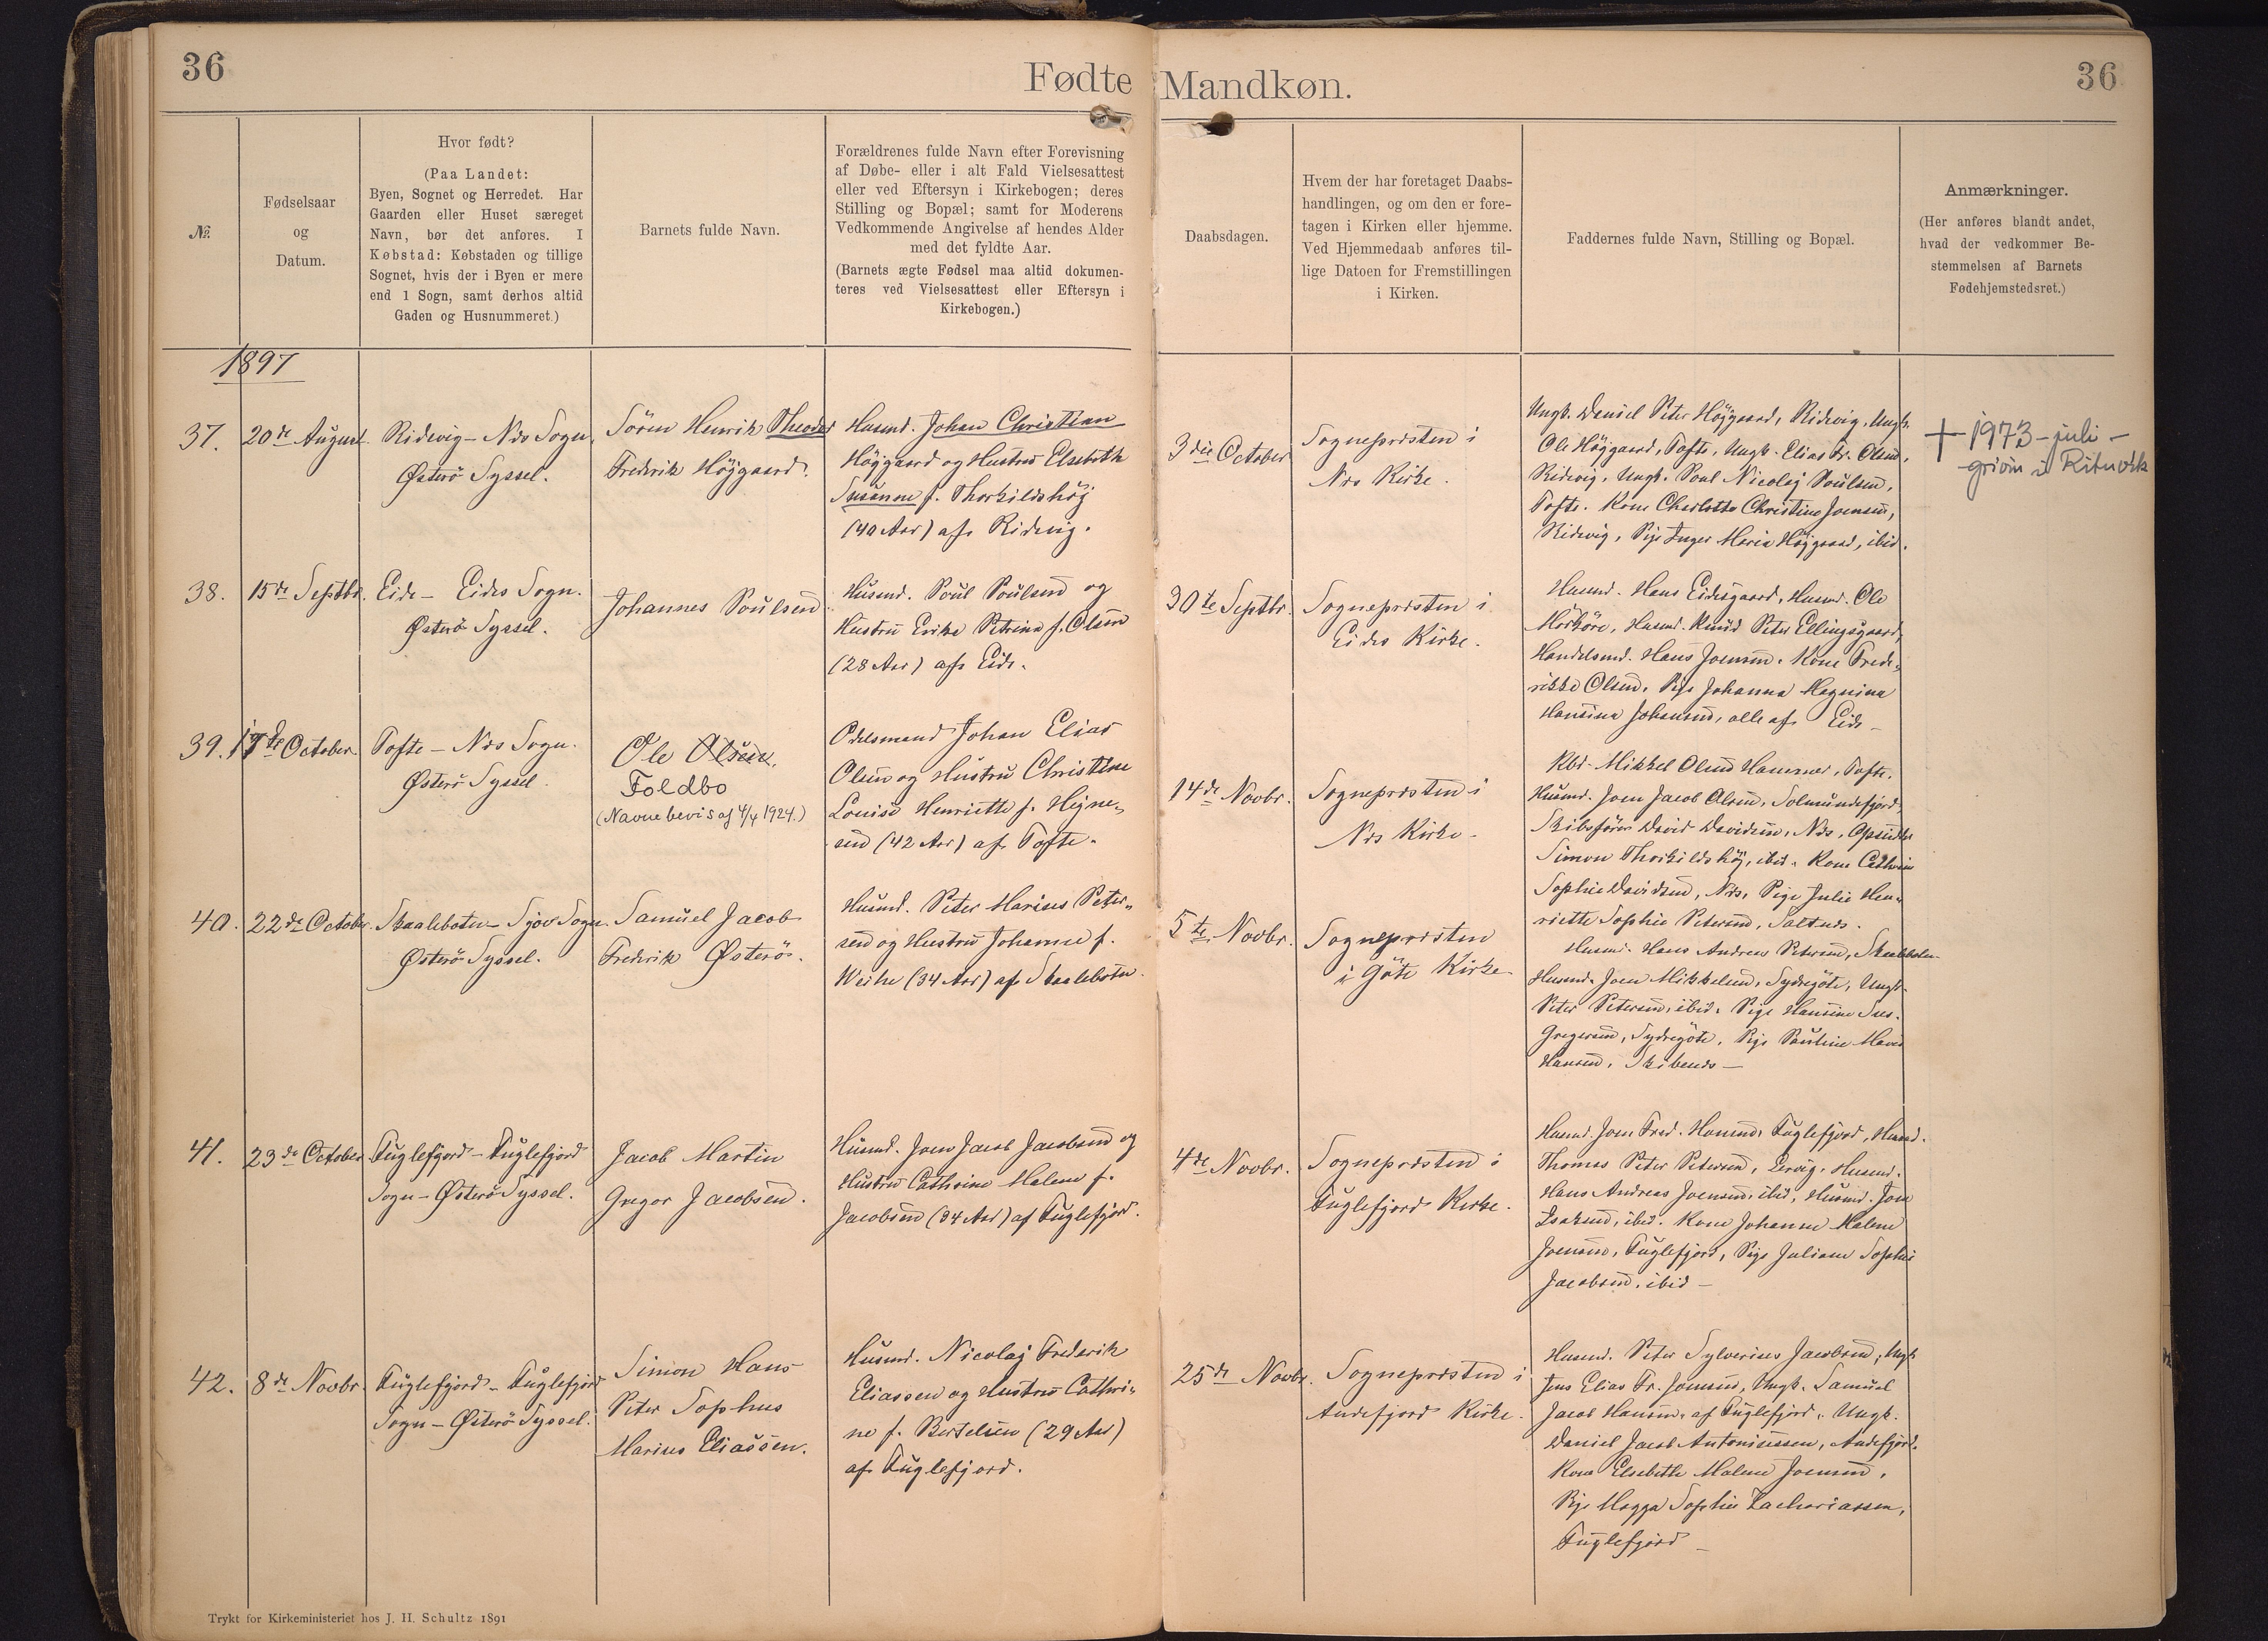 36
Fødte
Mandkøn.
36
№.
Fødselsaar
og
Datum.
Hvor født?
(Paa Landet:
Byen, Sognet og Herredet. Har
Gaarden eller Huset særeget
Navn, bør det anføres. I
Købstad: Købstaden og tillige
Sognet, hvis der i Byen er mere
end 1 Sogn, samt derhos altid
Gaden og Husnummeret.)
Barnets fulde Navn.
Forældrenes fulde Navn efter Forevisning
af Døbe- eller i alt Fald Vielsesattest
eller ved Eftersyn i Kirkebogen; deres
Stilling og Bopæl; samt for Moderens
Vedkommende Angivelse af hendes Alder
med det fyldte Aar.
(Barnets ægte Fødsel maa altid dokumen-
teres ved Vielsesattest eller Eftersyn i
Kirkebogen.)
Daabsdagen.
Hvem der har foretaget Daabs-
handlingen, og om den er fore-
tagen i Kirken eller hjemme.
Ved Hjemmedaab anføres til-
lige Datoen for Fremstillingen
i Kirken.
Faddernes fulde Navn, Stilling og Bopæl.
Anmærkninger.
(Her anføres blandt andet,
hvad der vedkommer Be-
stemmelsen af Barnets
Fødehjemstedsret.)
1897
37.
20de August
Ridevig - Nes Sogn,
Österö Syssel.
Sören Henrik Theodor
Frederik Höjgaard.
Husmd. Johan Christian
Höjgaard og Hustru Elsebeth
Susanne f. Thorkildshöj
(40 Aar) af Ridevig.
3die October
Sognepræsten i
Nes Kirke.
Ungk. Daniel Peter Höjgaard, Ridevig, Ungk.
Ole Höjgaard, Tofte, Ungk. Elias Fr. Olsen,
Ridevig, Ungk. Poul Nicolaj Poulsen,
Tofte. Kone Charlotte Christine Joensen,
Ridevig, Pige Inger Maria Höjgaard, ibid.
+ 1973 - juli -
grivin í Rituvík
38.
15de Septbr.
Eide - Eides Sogn.
Österö Syssel.
Johannes Poulsen
Husmd. Poul Poulsen og
Hustru Erike Petrine f. Olsen
(28 Aar) af Eide.
30te Septbr.
Sognepræsten i
Eides Kirke.
Husmd. Hans Eidesgaard, Husmd. Ole
Mörköre, Husmd. Knud Peter Ellingsgaard,
Handelsmd. Hans Joensen. Kone Frede-
rikke Olsen, Pige Johanna Magnina
Hansina Johansen, alle af Eide -
39.
October.
Tofte - Nes Sogn.
Österö Syssel.
Ole Olsen.
Foldbo
(Navnebevis af 4/4 1924.)
Odelsmand Johan Elias
Olsen og Hustru Christine
Louise Henriette f. Hejne-
sen (42 Aar) af Tofte.
14de Novbr.
Sognepræsten i
Nes Kirke -
Kbd. Mikkel Olsen Hammer, Tofte.
Husmd. Joen Jacob Olsen, Solmundefjord,
Skibsförer David Davidsen, Nes, Opsidder
Simon Thorkildshöj, ibid. Kone Cathrine
Sophie Davidsen, Nes, Pige Julie Hen-
riette Sophie Petersen, Saltnes.
40.
22de October.
Skaalebotn - Sjov Sogn.
Österö Syssel.
Samuel Jacob
Frederik Österö.
Husmd. Peter Marius Peter-
sen og Hustru Johanne f.
Weihe (34 Aar) af Skaalebotn.
5te Novbr.
Sognepræsten
i Göte Kirke
Husmd. Hans Andreas Petersen, Skaalebotn.
Husmd. Joen Mikkelsen, Sydregöte, Ungk.
Peter Petersen, ibid. Pige Hansine Sus.
Gregersen, Sydregöte, Pige Pauline Marie
Hansen, Skibenes -
41.
23de October
Fuglefjord - Fuglefjord
Sogn - Österö Syssel.
Jacob Martin
Gregor Jacobsen.
Husmd. Joen Jacob Jacobsen og
Hustru Cathrine Malene f.
Jacobsen (34 Aar) af Fuglefjord.
4de Novbr.
Sognepræsten i
Fuglefjord Kirke.
Husmd. Joen Fred. Hansen, Fuglefjord, Husmd.
Thomas Peter Petersen, Lervig, Husmd.
Hans Andreas Joensen, ibid, Husmd. Joen
Isaksen, ibid. Kone Johanne Malene
Joensen, Fuglefjord, Pige Juliane Sophie
Jacobsen, ibid -
42.
8de Novbr.
Fuglefjord - Fuglefjord
Sogn - Österö Syssel.
Simon Hans
Peter Sophus
Marius Eliassen.
Husmd. Nicolaj Frederik
Eliassen og Hustru Cathri-
ne f. Bertelsen (29 Aar)
af Fuglefjord.
25de Novbr.
Sognepræsten i
Andefjord Kirke.
Husmd. Peter Sylverius Jacobsen, Ungk.
Jens Elias Fr. Joensen, Ungk. Samuel
Jacob Hansen, af Fuglefjord, Ungk.
Daniel Jacob Antoniussen, Andefjord.
Kone Elsebeth Malene Joensen,
Pige Magga Sophie Zachariassen,
Fuglefjord -
Trykt for Kirkeministeriet hos J. H. Schultz 1891